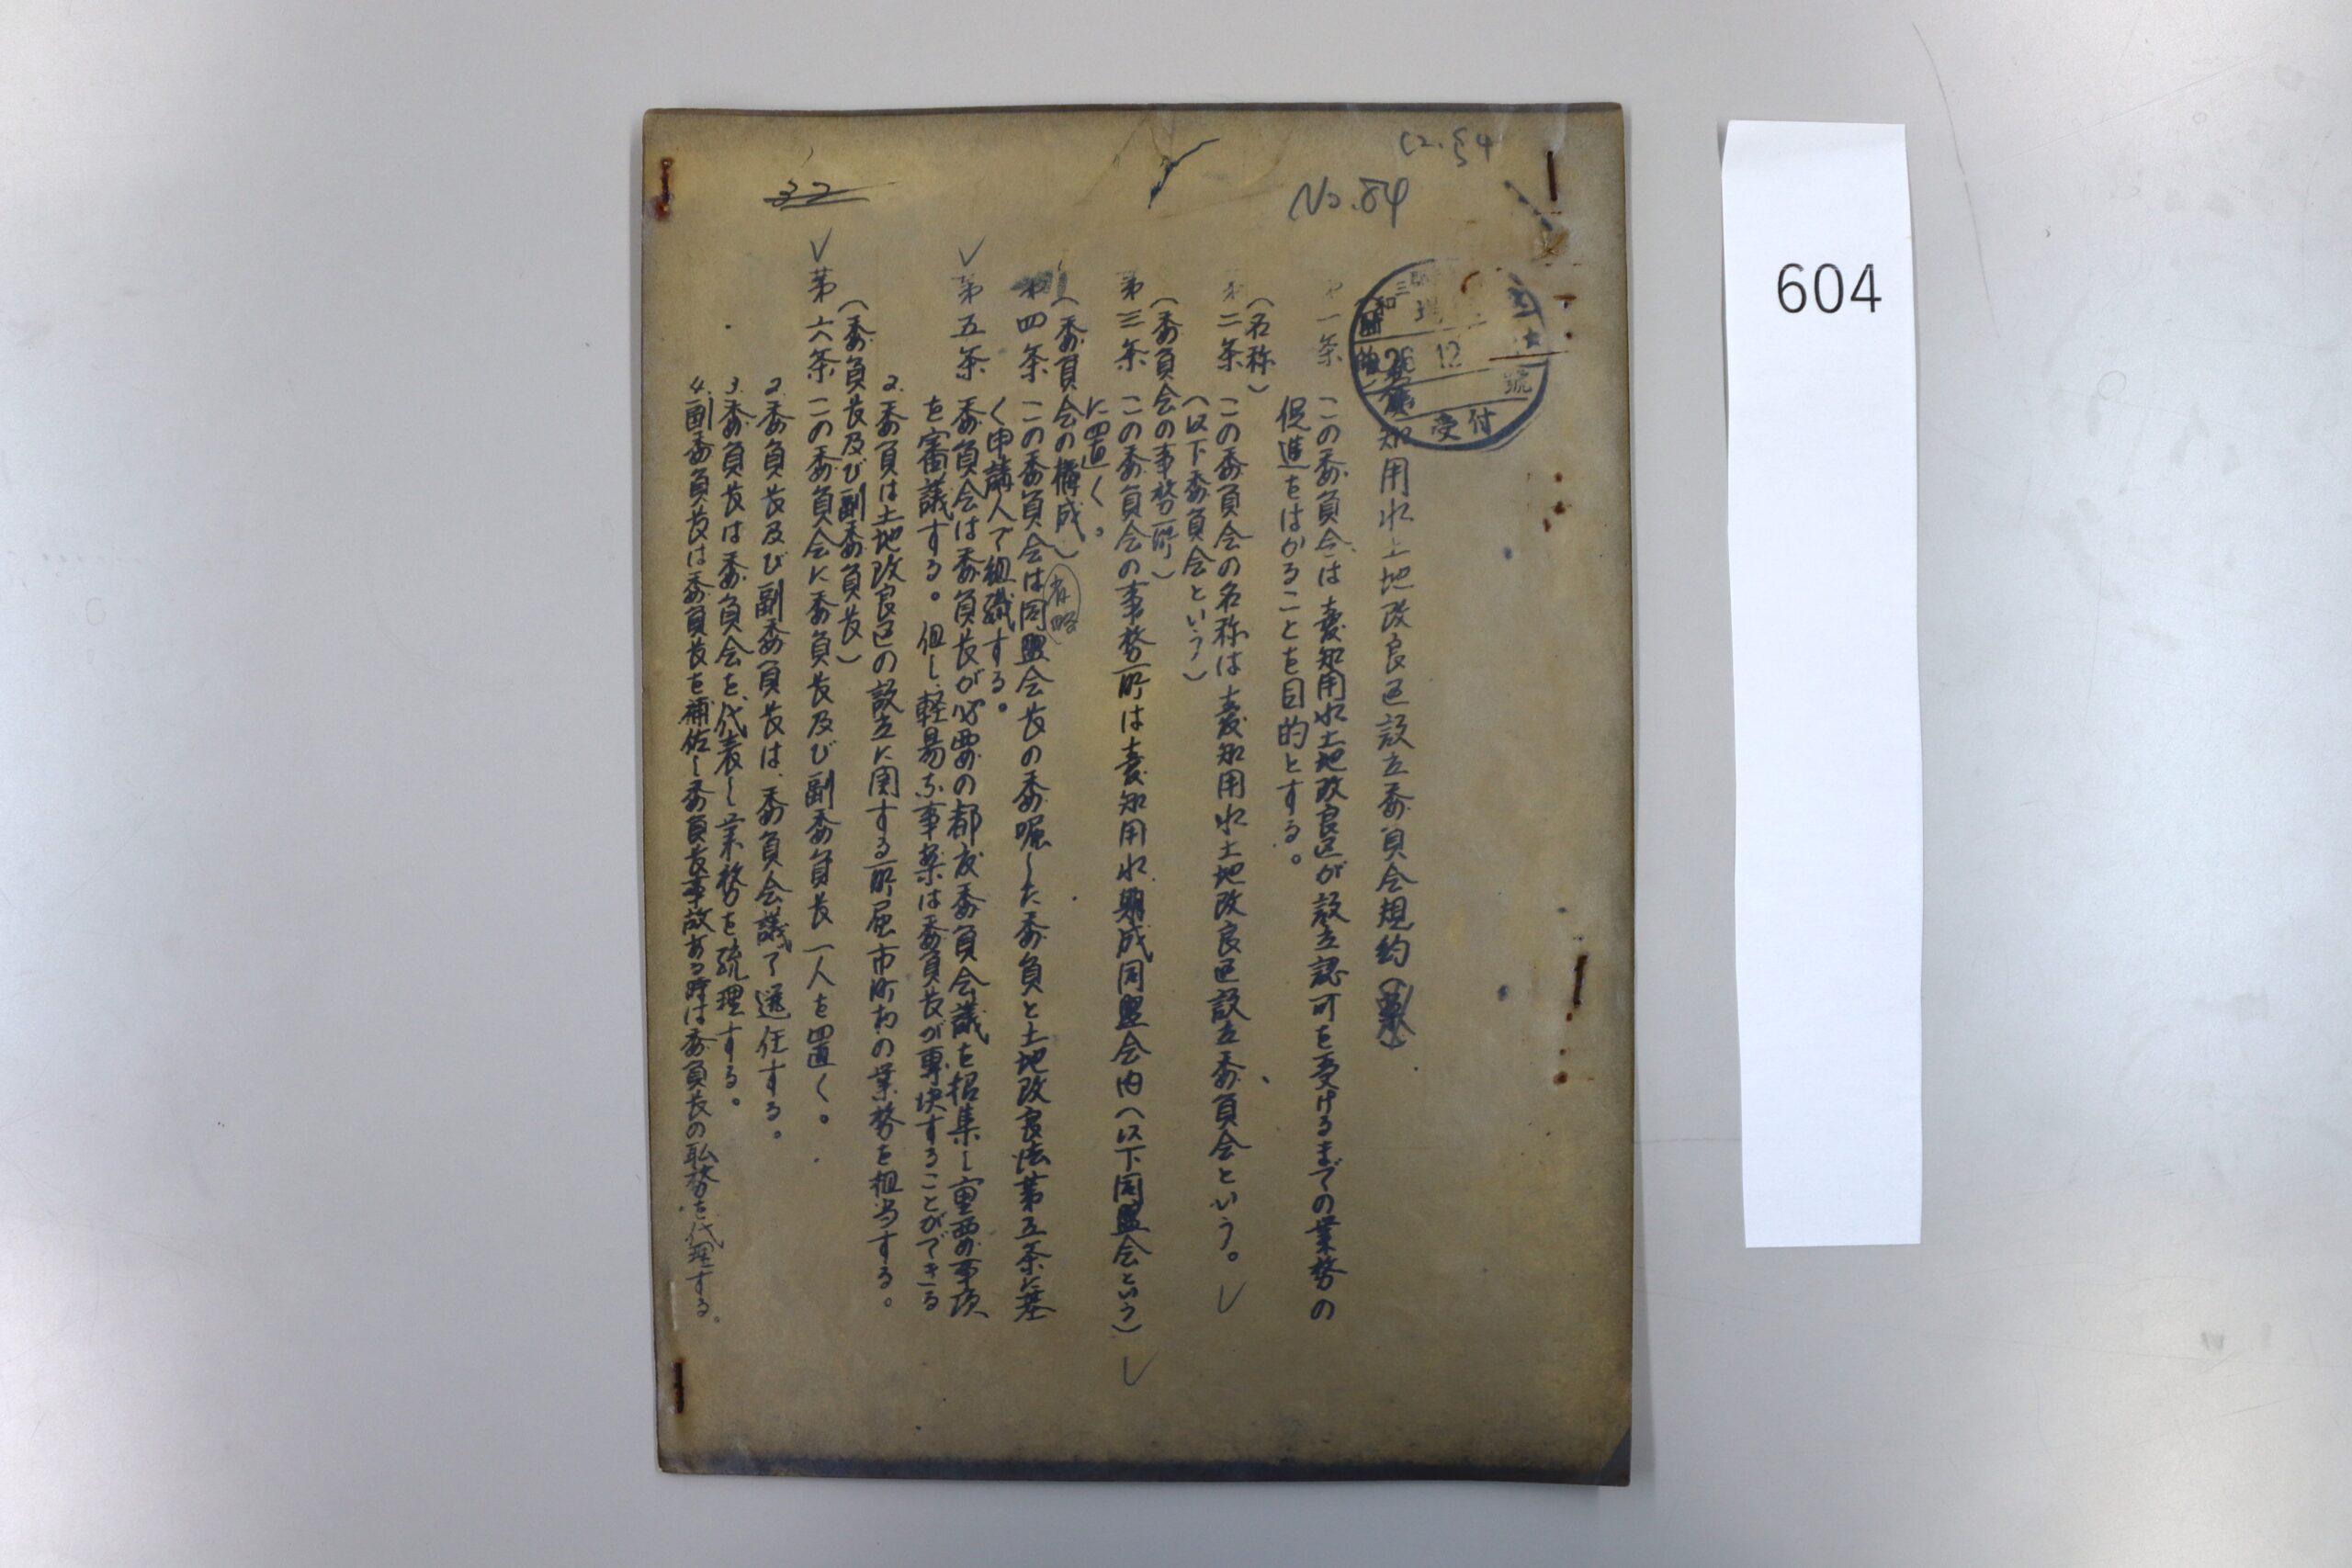 No.54
32
愛知用水土地改良区設立委員会規約(案)
(目的)
第一条 この委員会は愛知用水土地改良区が設立認可を受けるまでの業務の
促進をはかることを目的とする。
(名称)
第二条 この委員会の名称は愛知用水土地改良区設立委員会という。
(以下委員会という)
(委員会の事務所)
第三条 この委員会の事務所は愛知用水期成同盟会内(以下同盟会という)
に置く。
(委員会の構成) 省略
第四条 この委員会は同盟会長の委嘱した委員と土地改良法第五条に基
く申請人で組織する。
第五条 委員会は委員長が必要の都度委員会議を招集し重要事項
を審議する。但し、軽易な事案は委員長が専決することができる
2.委員は土地改良区の設立に関する所属市町村の業務を担当する。
(委員長及び副委員長)
第六条 この委員会に委員長及び副委員長一人を置く。
2.委員長及び副委員長は、委員会議で選任する。
3.委員長は委員会を代表し業務を統理する。
4.副委員長は委員長を補佐し委員長事故ある時は委員長の職務を代理する。
26 12
號
受付
604